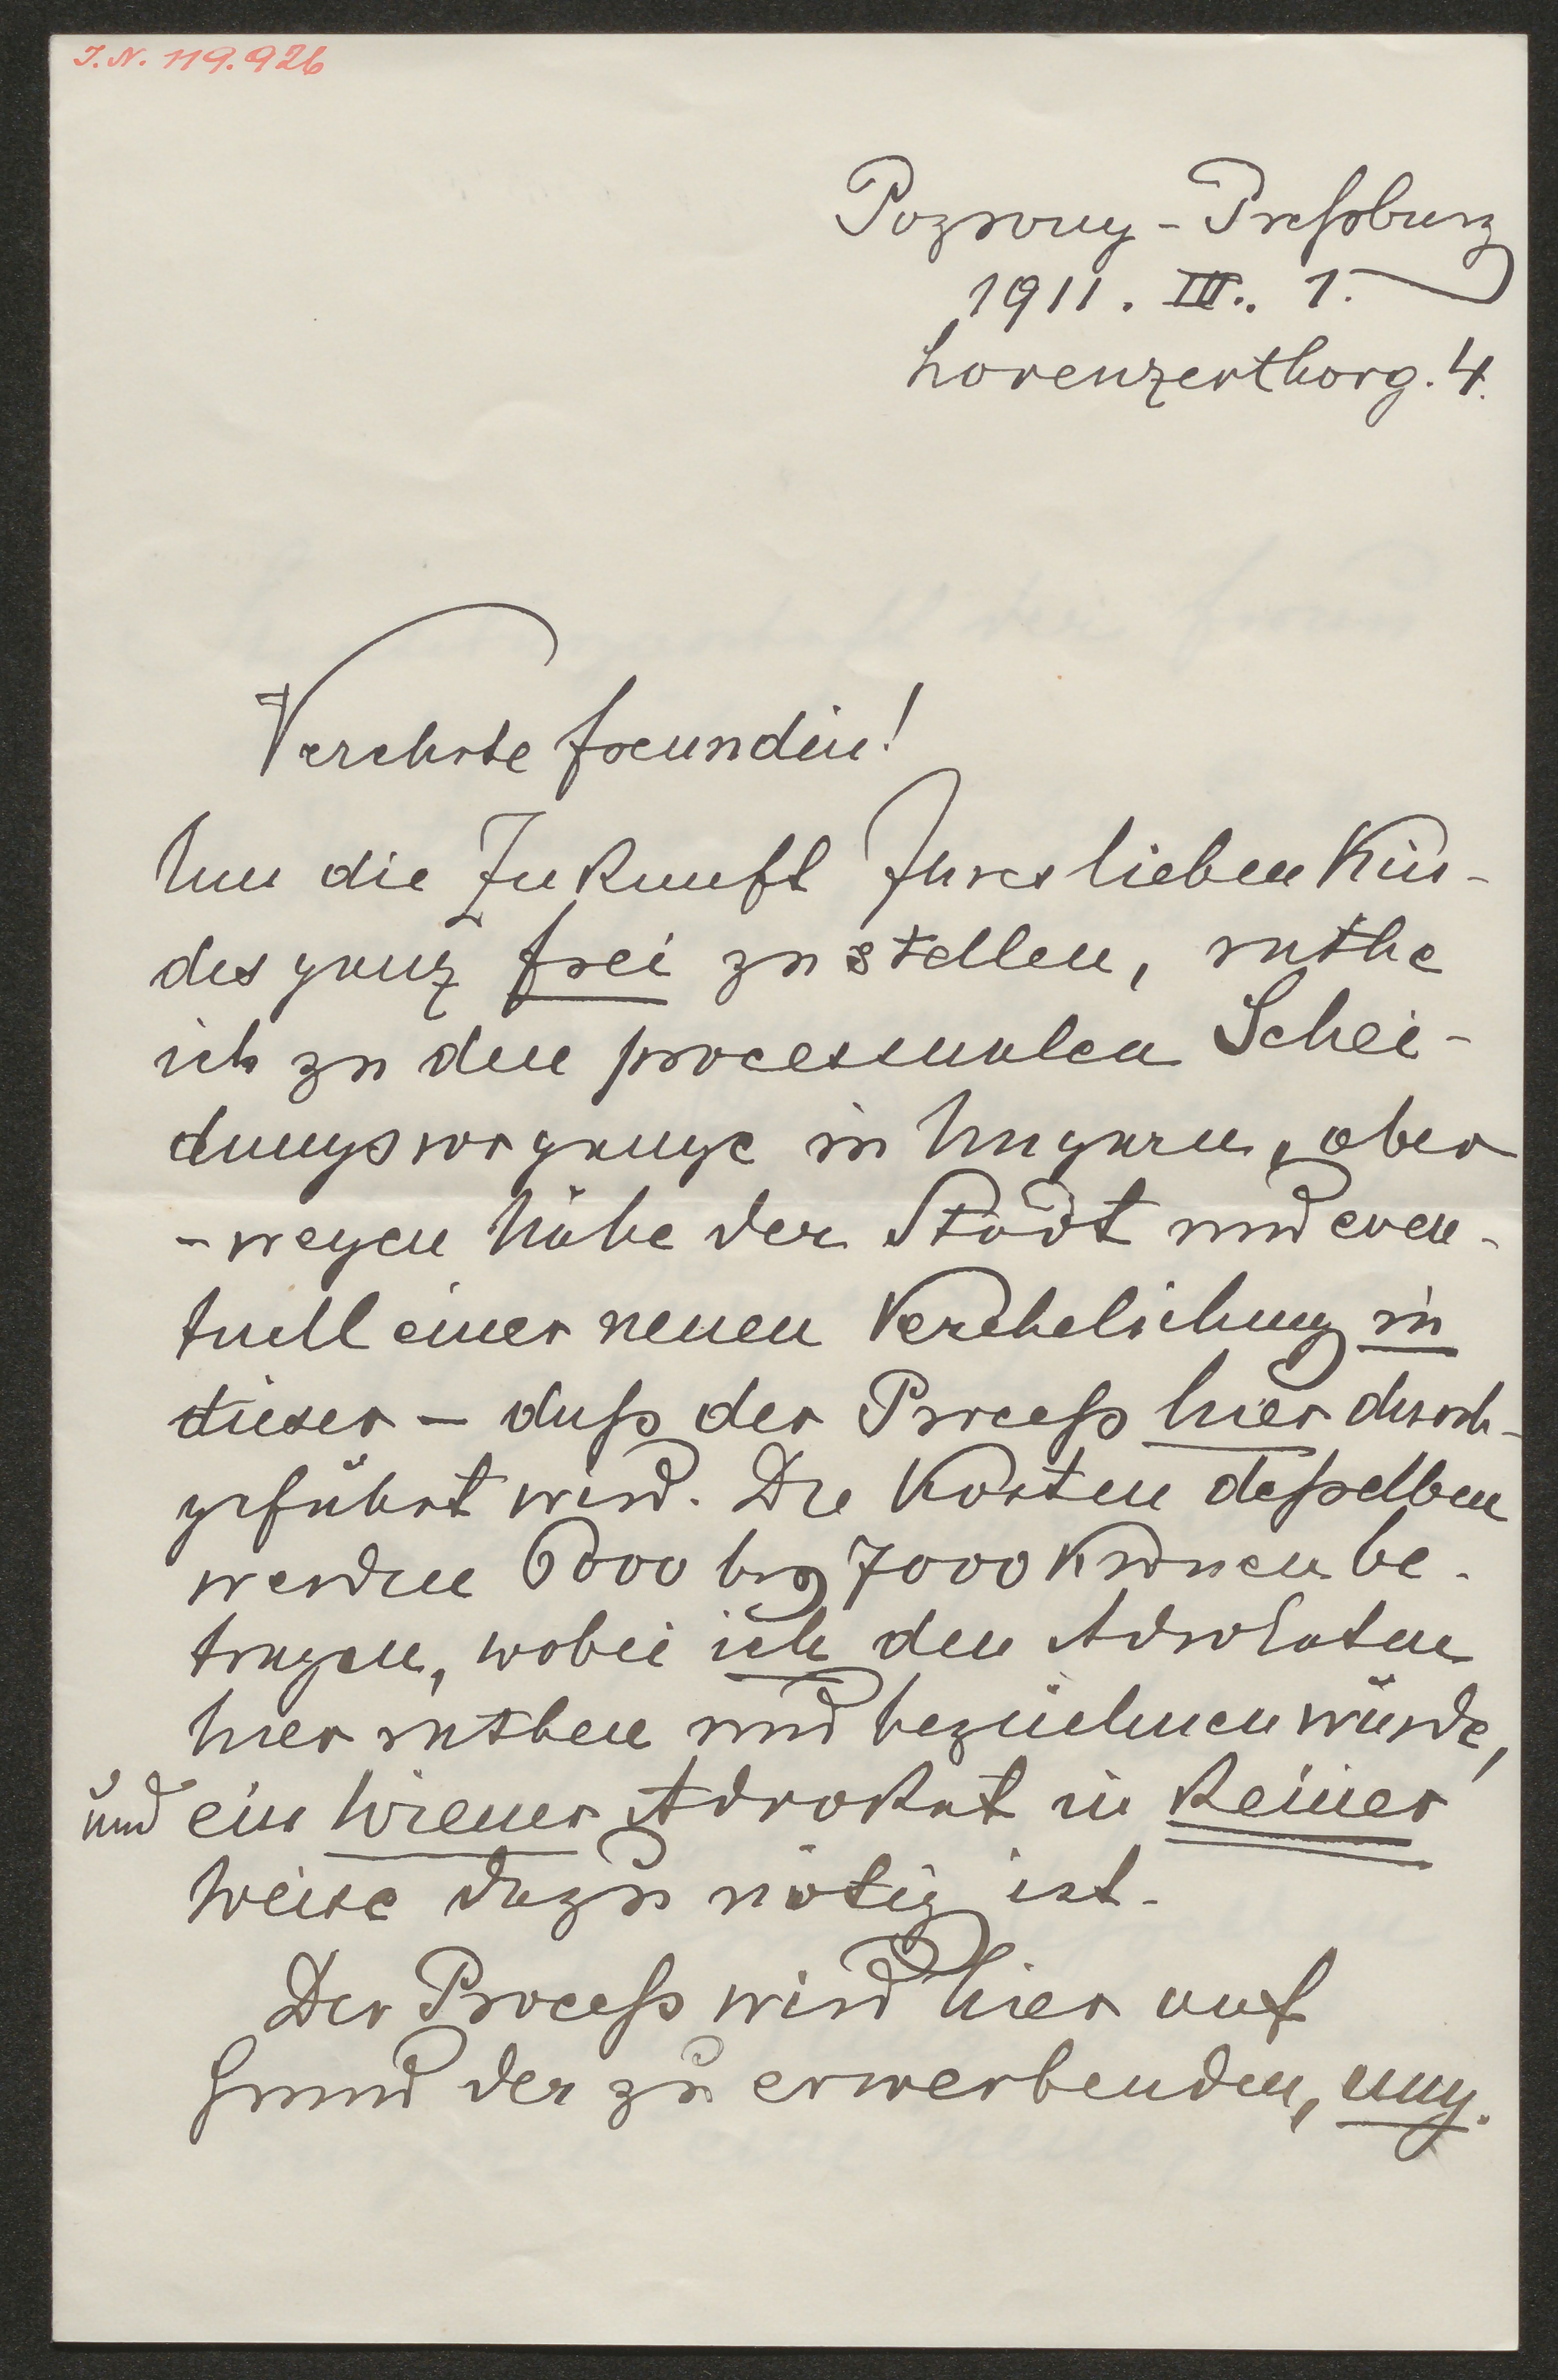 I. N. 119.926
Pozsony-Preßburg
1911. III. 1.
Lorenzerthorg. 4.
Verehrte Freundin!
Um die Zukunft Ihres lieben Kin-
des ganz frei zu stellen, rathe
ich zu den processualen Schei-
dungsvorgange in Ungarn, aber
- wegen Nähe der Stadt und even-
tuell einer neuen Verehelichung in
dieser - daß der Proceß hier durch-
geführt wird. Die Kosten deßselben
werden 6000 bis 7000 Kronen be-
tragen, wobei ich den Advokaten
hier rathen und beziehen würde,
und ein Wiener Advokat in keiner
Weise dazu nötig ist.
Der Proceß wird hier auf
Grund der zu erwerbenden, ung.